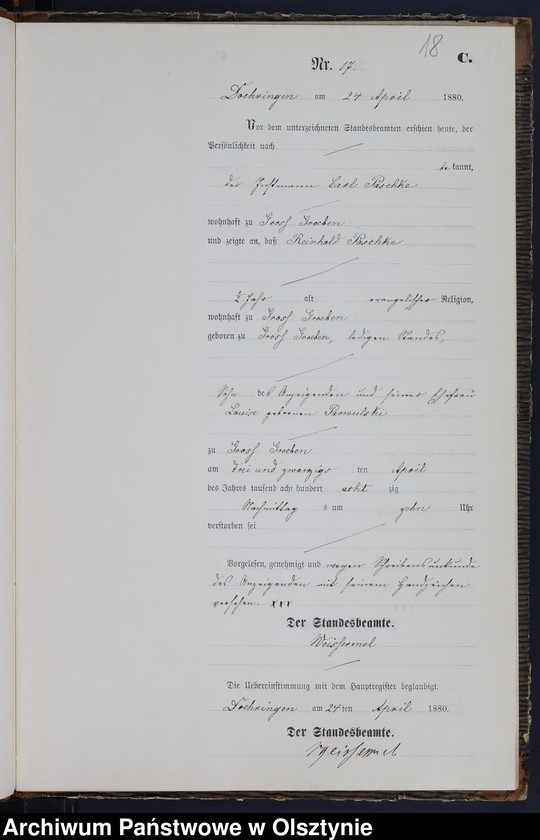 18
C.
Nr. 17.
Doehringen am 24 April 1880.
Vor dem unterzeichneten Standesbeamten erschien heute, der
Persönlichkeit nach
be kannt,
der Instmann Carl Paschke
wohnhaft zu Gross Groeben
und zeigte an, daß Reinhold Paschke
½ Jahr alt evangelischer Religion,
wohnhaft zu Gross Groeben
geboren zu Gross Groeben, ledigen Standes,
Sohn des Anzeigenden und seiner Ehefrau
Louise geborenen
zu Gross Groeben
am drei und zwanzigs ten April
des Jahres tausend acht hundert acht zig
Nachmittag s um zehn Uhr
verstorben sei
Vorgelesen, genehmigt und wegen Schreibensunkunde
des Anzeigenden mit seinem Handzeichen
versehen. xxx
Der Standesbeamte.
Weissermel
Die Uebereinstimmung mit dem Hauptregister beglaubigt.
Doehringen am 24 ten April 1880.
Der Standesbeamte.
Weissermel
Archiwum Państwowe w Olsztynie